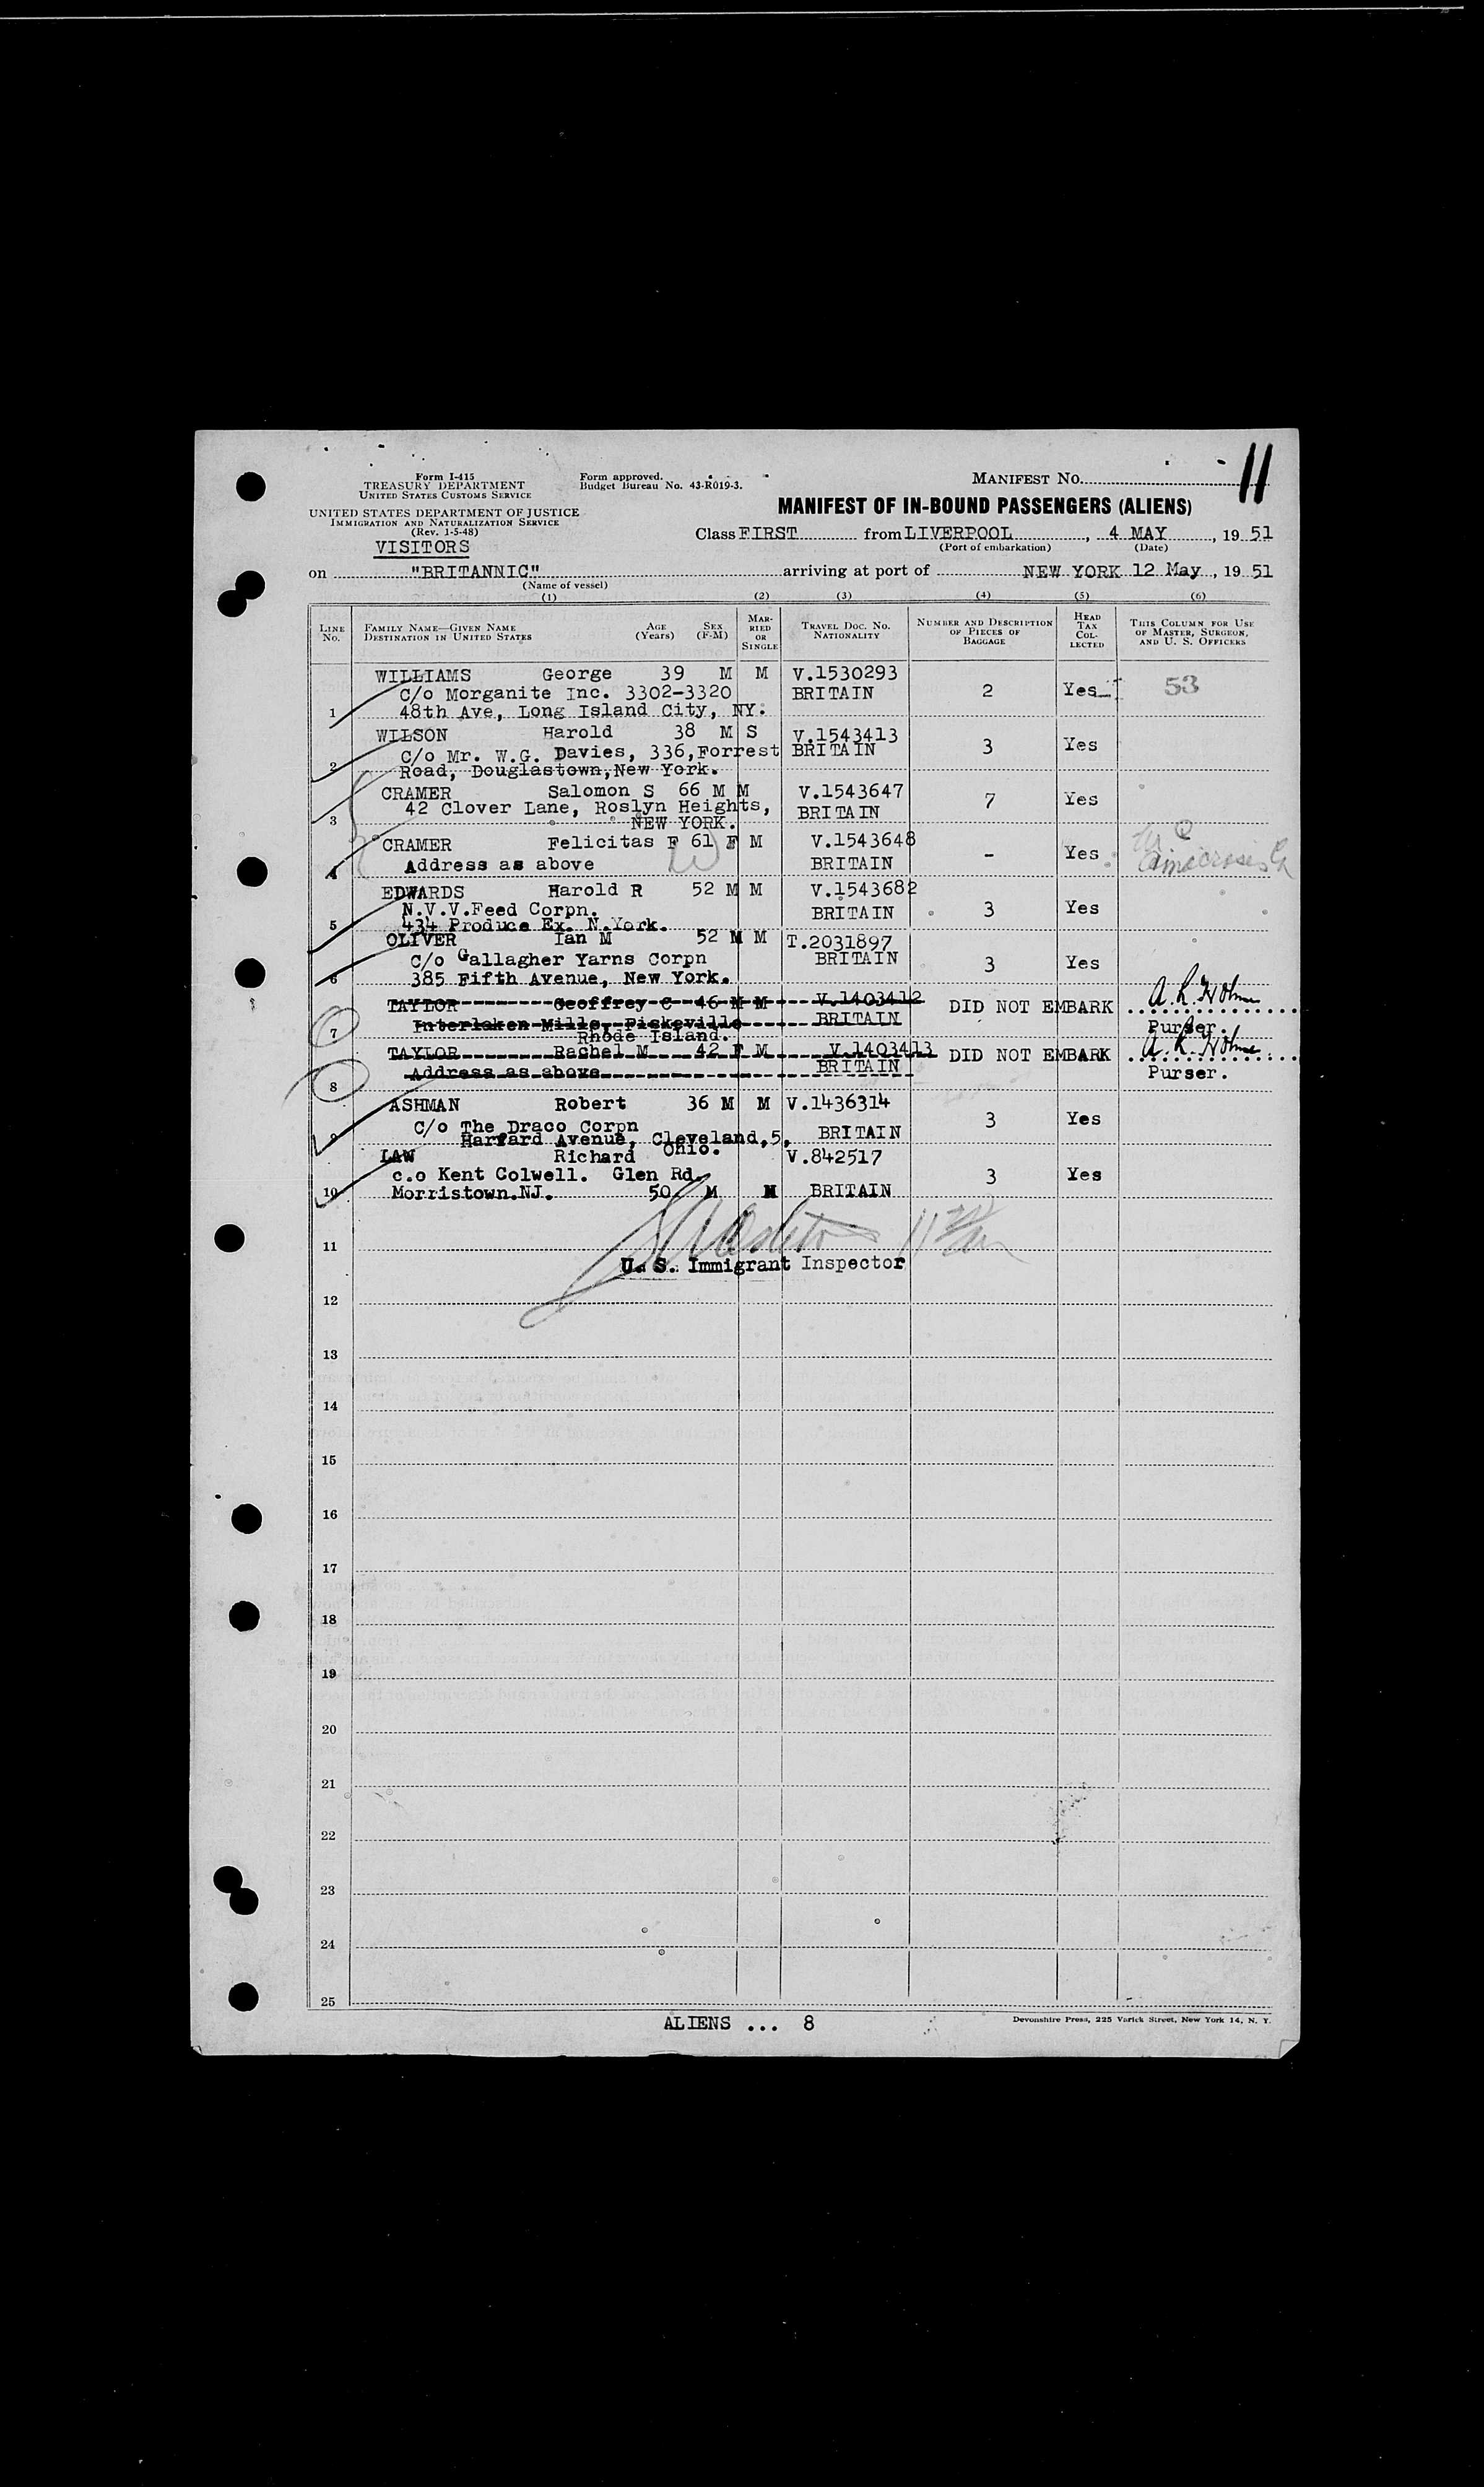 11
Form I-415
TREASURY DEPARTMENT
UNITED STATES CUSTOMS SERVICE
Form approved.
Budget Bureau No. 43-R019-3.
MANIFEST NO.
UNITED STATES DEPARTMENT OF JUSTICE
IMMIGRATION AND NATURALIZATION SERVICE
(Rev. 1-5-48)
MANIFEST OF IN-BOUND PASSENGERS (ALIENS)
VISITORS
Class FIRST from LIVERPOOL, 4 MAY, 19 51
(Port of embarkation) (Date)
on "BRITANNIC" arriving at port of NEW YORK 12 May, 19 51
(Name of vessel)
(1) (2) (3) (4) (5) (6)
LINE No. FAMILY NAME—GIVEN NAME DESTINATION IN UNITED STATES AGE (Years) SEX (F-M) MARRIED OR SINGLE TRAVEL DOC. NO. NATIONALITY NUMBER AND DESCRIPTION OF PIECES OF BAGGAGE HEAD TAX COLLECTED THIS COLUMN FOR USE OF MASTER, SURGEON, AND U. S. OFFICERS
WILLIAMS George 39 M M V.1530293
C/o Morganite Inc. 3302-3320 BRITAIN 2 Yes 53
1 48th Ave, Long Island City, NY.
WILSON Harold 38 M S V.1543413
C/o Mr. W.G. Davies, 336,Forrest BRITAIN 3 Yes
2 Road, Douglastown,New York.
CRAMER Salomon S 66 M M V.1543647 7 Yes
42 Clover Lane, Roslyn Heights, BRITAIN
3 NEW YORK.
CRAMER Felicitas F 61 F M V.1543648
4 Address as above BRITAIN - Yes
EDWARDS Harold R 52 M M V.1543682
N.V.V.Feed Corpn. BRITAIN 3 Yes
5 434 Produce Ex. N.York.
OLIVER Ian M 52 M M T.2031897
C/o Gallagher Yarns Corpn BRITAIN 3 Yes
6 385 Fifth Avenue, New York.
TAYLOR Geoffrey C 46 M M V.1403412 DID NOT EMBARK
Interlaken Mills, Fiskeville BRITAIN Purser.
7 Rhode Island.
TAYLOR Rachel M 42 F M V.1403413 DID NOT EMBARK
8 Address as above BRITAIN Purser.
ASHMAN Robert 36 M M V.1436314
C/o The Draco Corpn BRITAIN 3 Yes
9 Harfard Avenue, Cleveland,5,
Ohio.
LAW Richard V.842517
c.o Kent Colwell. Glen Rd. 3 Yes
10 Morristown.NJ. 50 M M BRITAIN
11
U. S. Immigrant Inspector
12
13
14
15
16
17
18
19
20
21
22
23
24
25
ALIENS ... 8
Devonshire Press, 225 Varick Street, New York 14, N. Y.